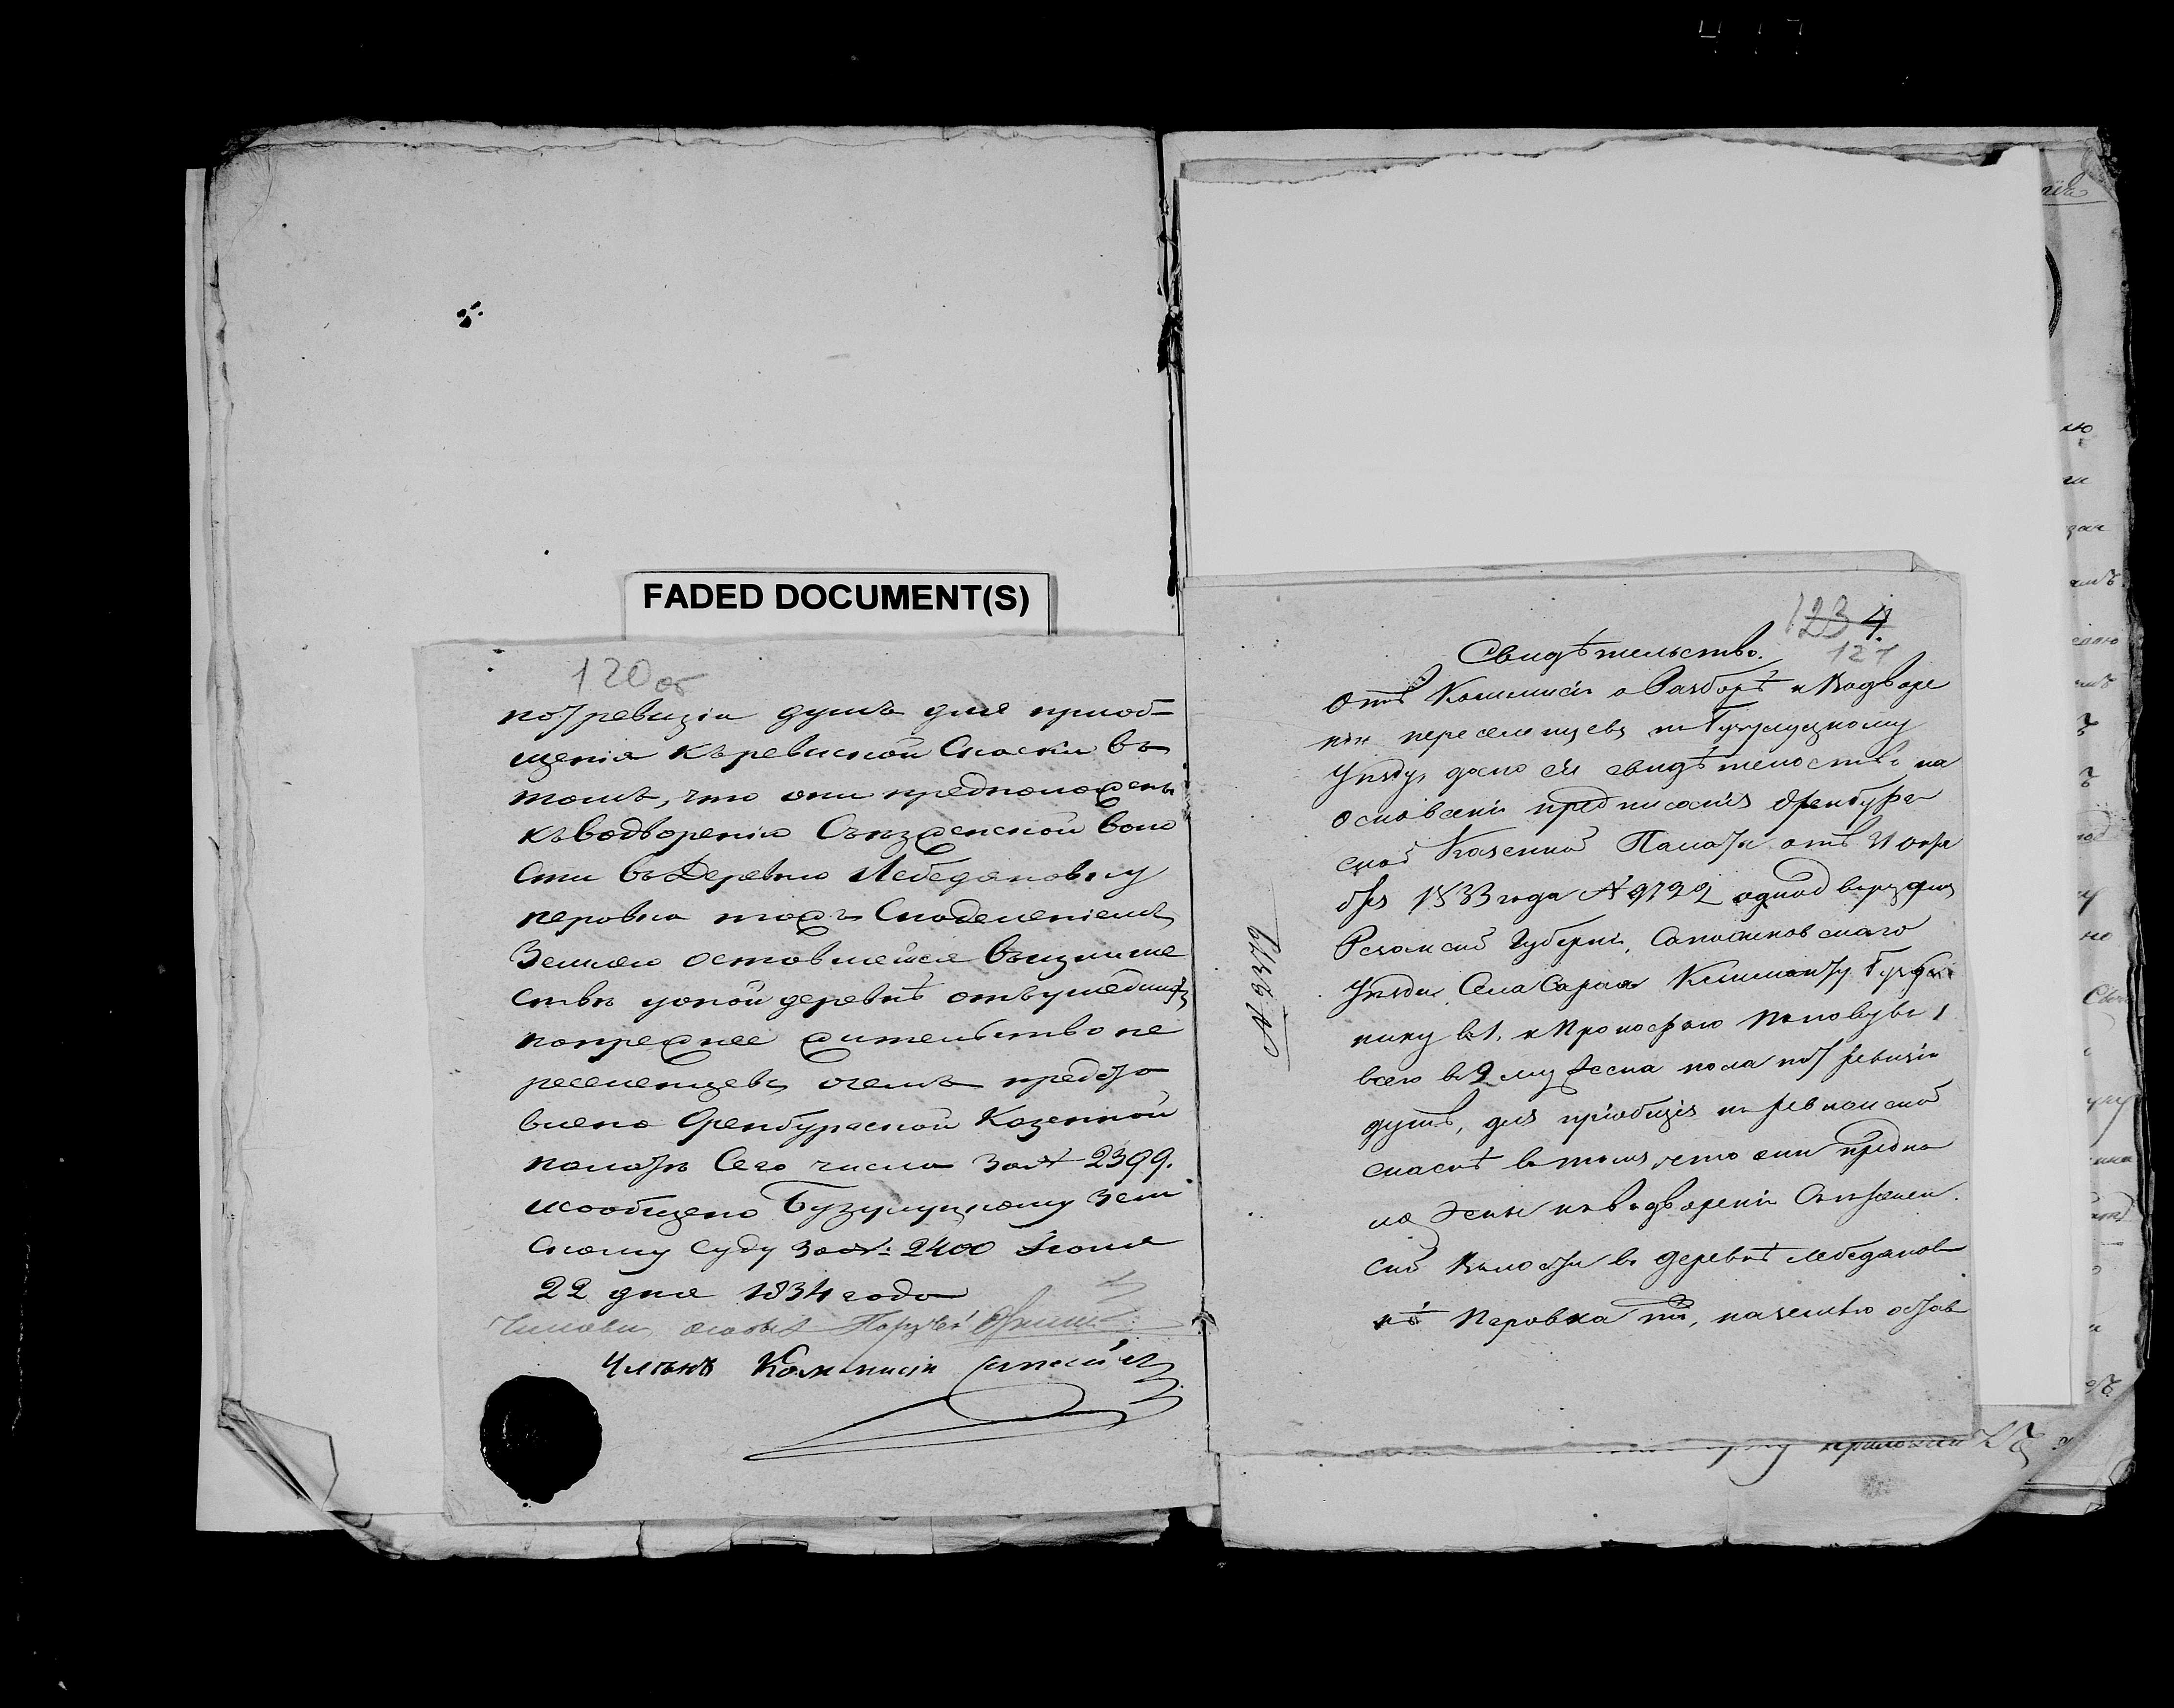 FADED DOCUMENT(S)
120 об
по 7 ревизіи душъ для приоб-
щенія къ ревиской Скаски въ
томъ, что они предположены
къ водворенію Съезженской воло
сти въ Деревню Лебедяновку
перовка тожъ Снаделеніемъ
Землею оставшейся въизлише
ствѣ уоной деревнѣ отвушедшихъ
попрежнее жительство пе
реселенцевъ, очемъ предста
влено Оренбургской Казенной
палатѣ Сего числа за № 2399.
исообщено Бузулуцкому Зем
скому Суду за №: 2400 Іюня
22 дня 1834 года
Членъ Коммисіи
123 4.
121
Свидѣтельство.
Отъ Коммисіи о Разборѣ и Водворе
ніи переселенцевъ по Бузулуцкому
Уѣзду, дано сіе свидѣтелоство на
основаніи предписанія Оренбург
ской Казенной Палаты отъ 21 октя
бря 1833 года № 9722 однодворцамъ
Резанской Губерніи, Сапожковскаго
Уѣзда Села Сараи
всего въ 2 мужеска пола по 7 ревизіи
душъ, для пріобщія къ ревизской
скаскѣ въ томъ, что они предпо
ложены къ водворенію Съѣзжен
ской Волости въ деревнѣ Лебедянов
кѣ Перовка тожъ, на землю остав
№ 2379